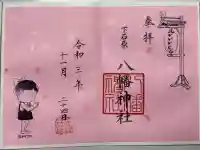 奉拝
下石原
八幡神社
令和三年
十一月
二十四日